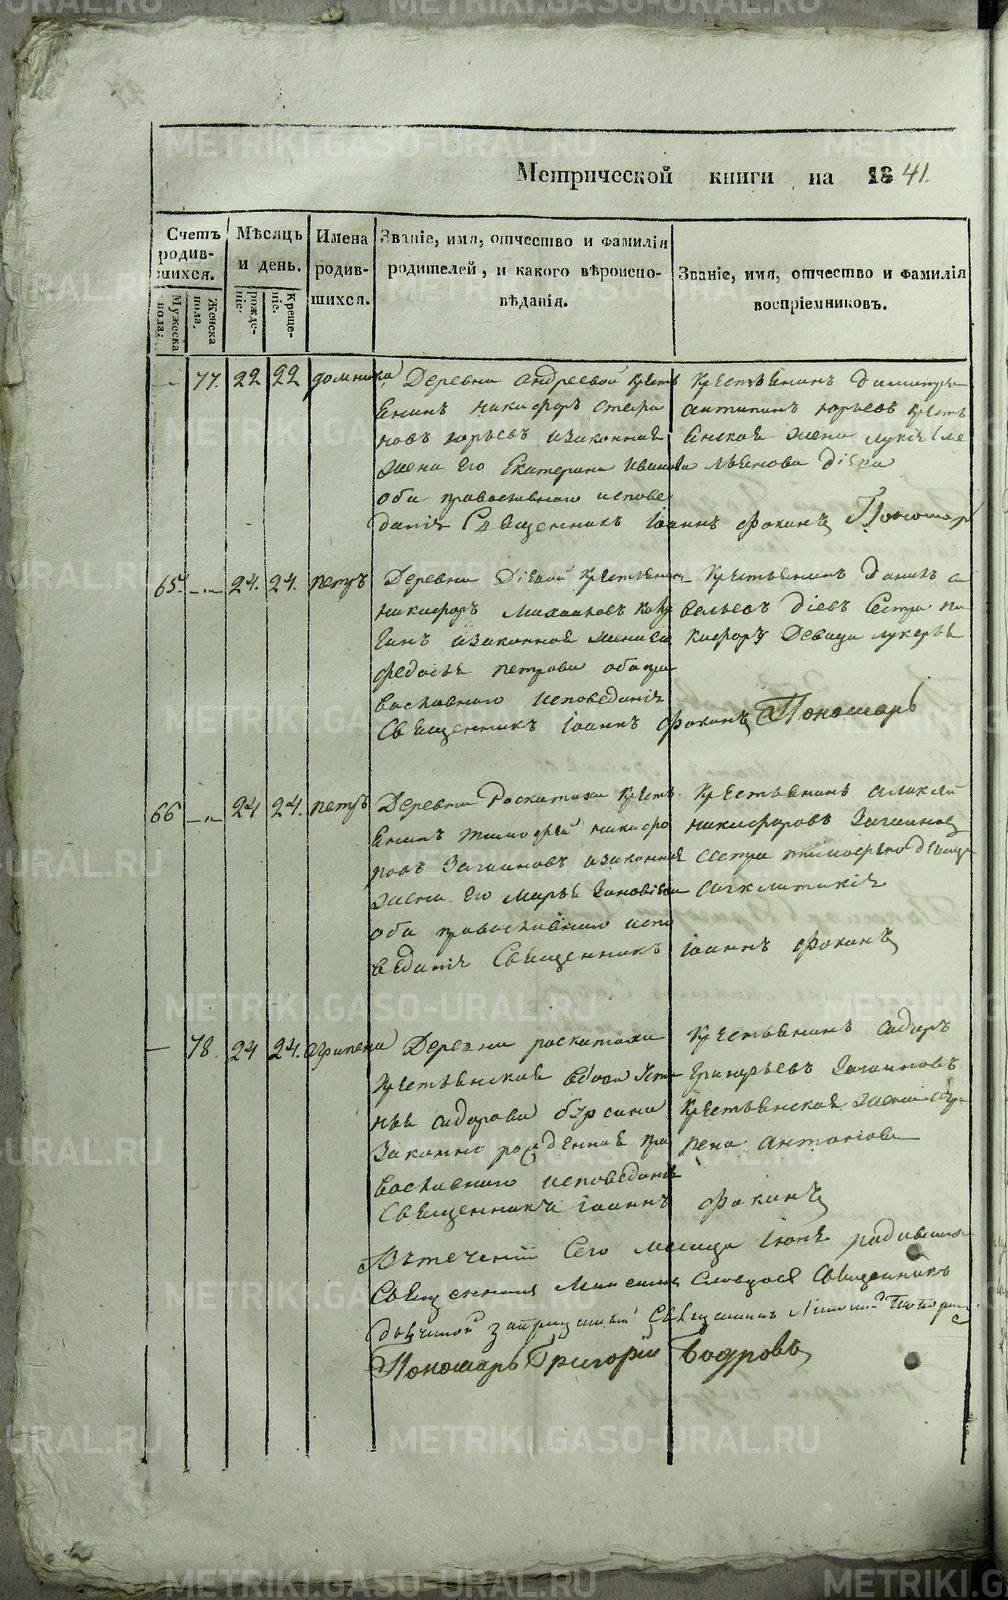 METRIKI.GASO-URAL.RU
Метрической книги на 1841.
Счетъ родив-шихся.
Мужеска пола.
Женска пола.
Мѣсяцъ и день.
рожде-ніе.
Креще-ніе.
Имена родив-шихся.
Званіе, имя, отчество и фамилія родителей, и какого вѣроиспо-вѣданія.
Званіе, имя, отчество и фамилія воспріемниковъ.
77. 22 22 домника
Деревни Андреевой крестъ
янинъ никифоръ стефа
новъ юрьевъ изаконная
жена его Екатерина Иванова
оба православнаго испове
данія Священникъ Іоаннъ Фокинъ Пономарь
Крестьянинъ димитрій
антипинъ юрьевъ кресть
янская жена лукія
діева
65. 24. 24. петръ
Деревни Діевой крестьянинъ
никифоръ Михайловъ
изаконная жена его
федосья петрова оба пра
вославнаго исповеданія
Священникъ Іоаннъ Фокинъ Пономарь
Крестьянинъ данилъ са
вельевъ діевъ Сестра ни
кифору девица лукерья
66 24 24. петръ
Деревни Роскатихи кресть
янинъ тимофей никифо
ровъ Загайновъ изаконная
жена его марья
оба православнаго испо
веданія Священникъ Іоаннъ Фокинъ
Крестьянинъ алексей
никифоровъ Загайновъ
сестра тимофею девица
78. 24 24. агрипена
Деревни роскатихи
крестьянская вдова усти
нья сидорова бурсина
законно рожденная пра
вославнаго исповеданія
Священникъ Іоаннъ Фокинъ
Крестьянинъ сидоръ
Григорьевъ Загайновъ
крестьянская жена
антонова
Въ теченіи Сего месяца Іюня родившихся
Священникъ
Священникъ
Пономарь Григорій Бодровъ